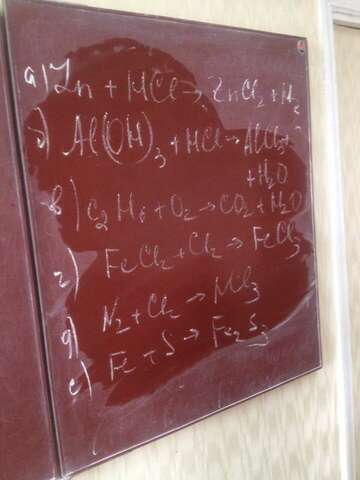 а) Zn + HCl → ZnCl₂ + H₂
б) Al(OH)₃ + HCl → AlCl₃ +
+ H₂O
в) C₂H₆ + O₂ → CO₂ + H₂O
г) FeCl₂ + Cl₂ → FeCl₃
д) N₂ + Cl₂ → NCl₃
е) Fe + S → Fe₂S₃